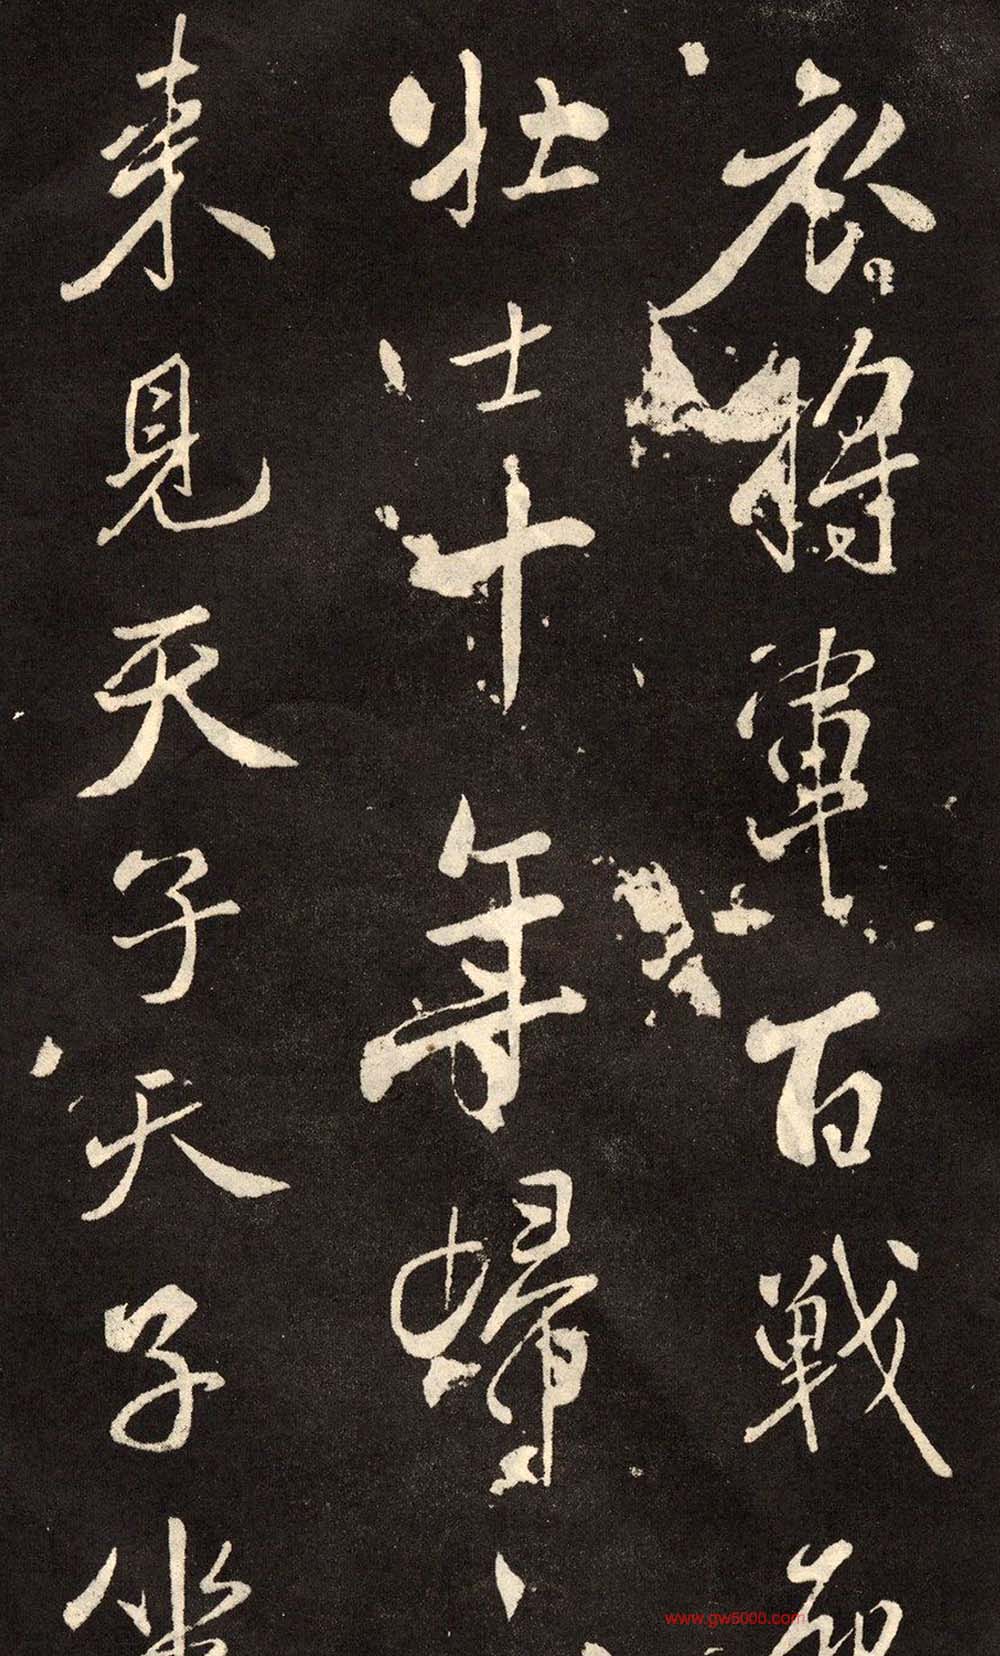 衣將軍百戰
壯士十年歸
來見天子天子坐
www.gw5000.com